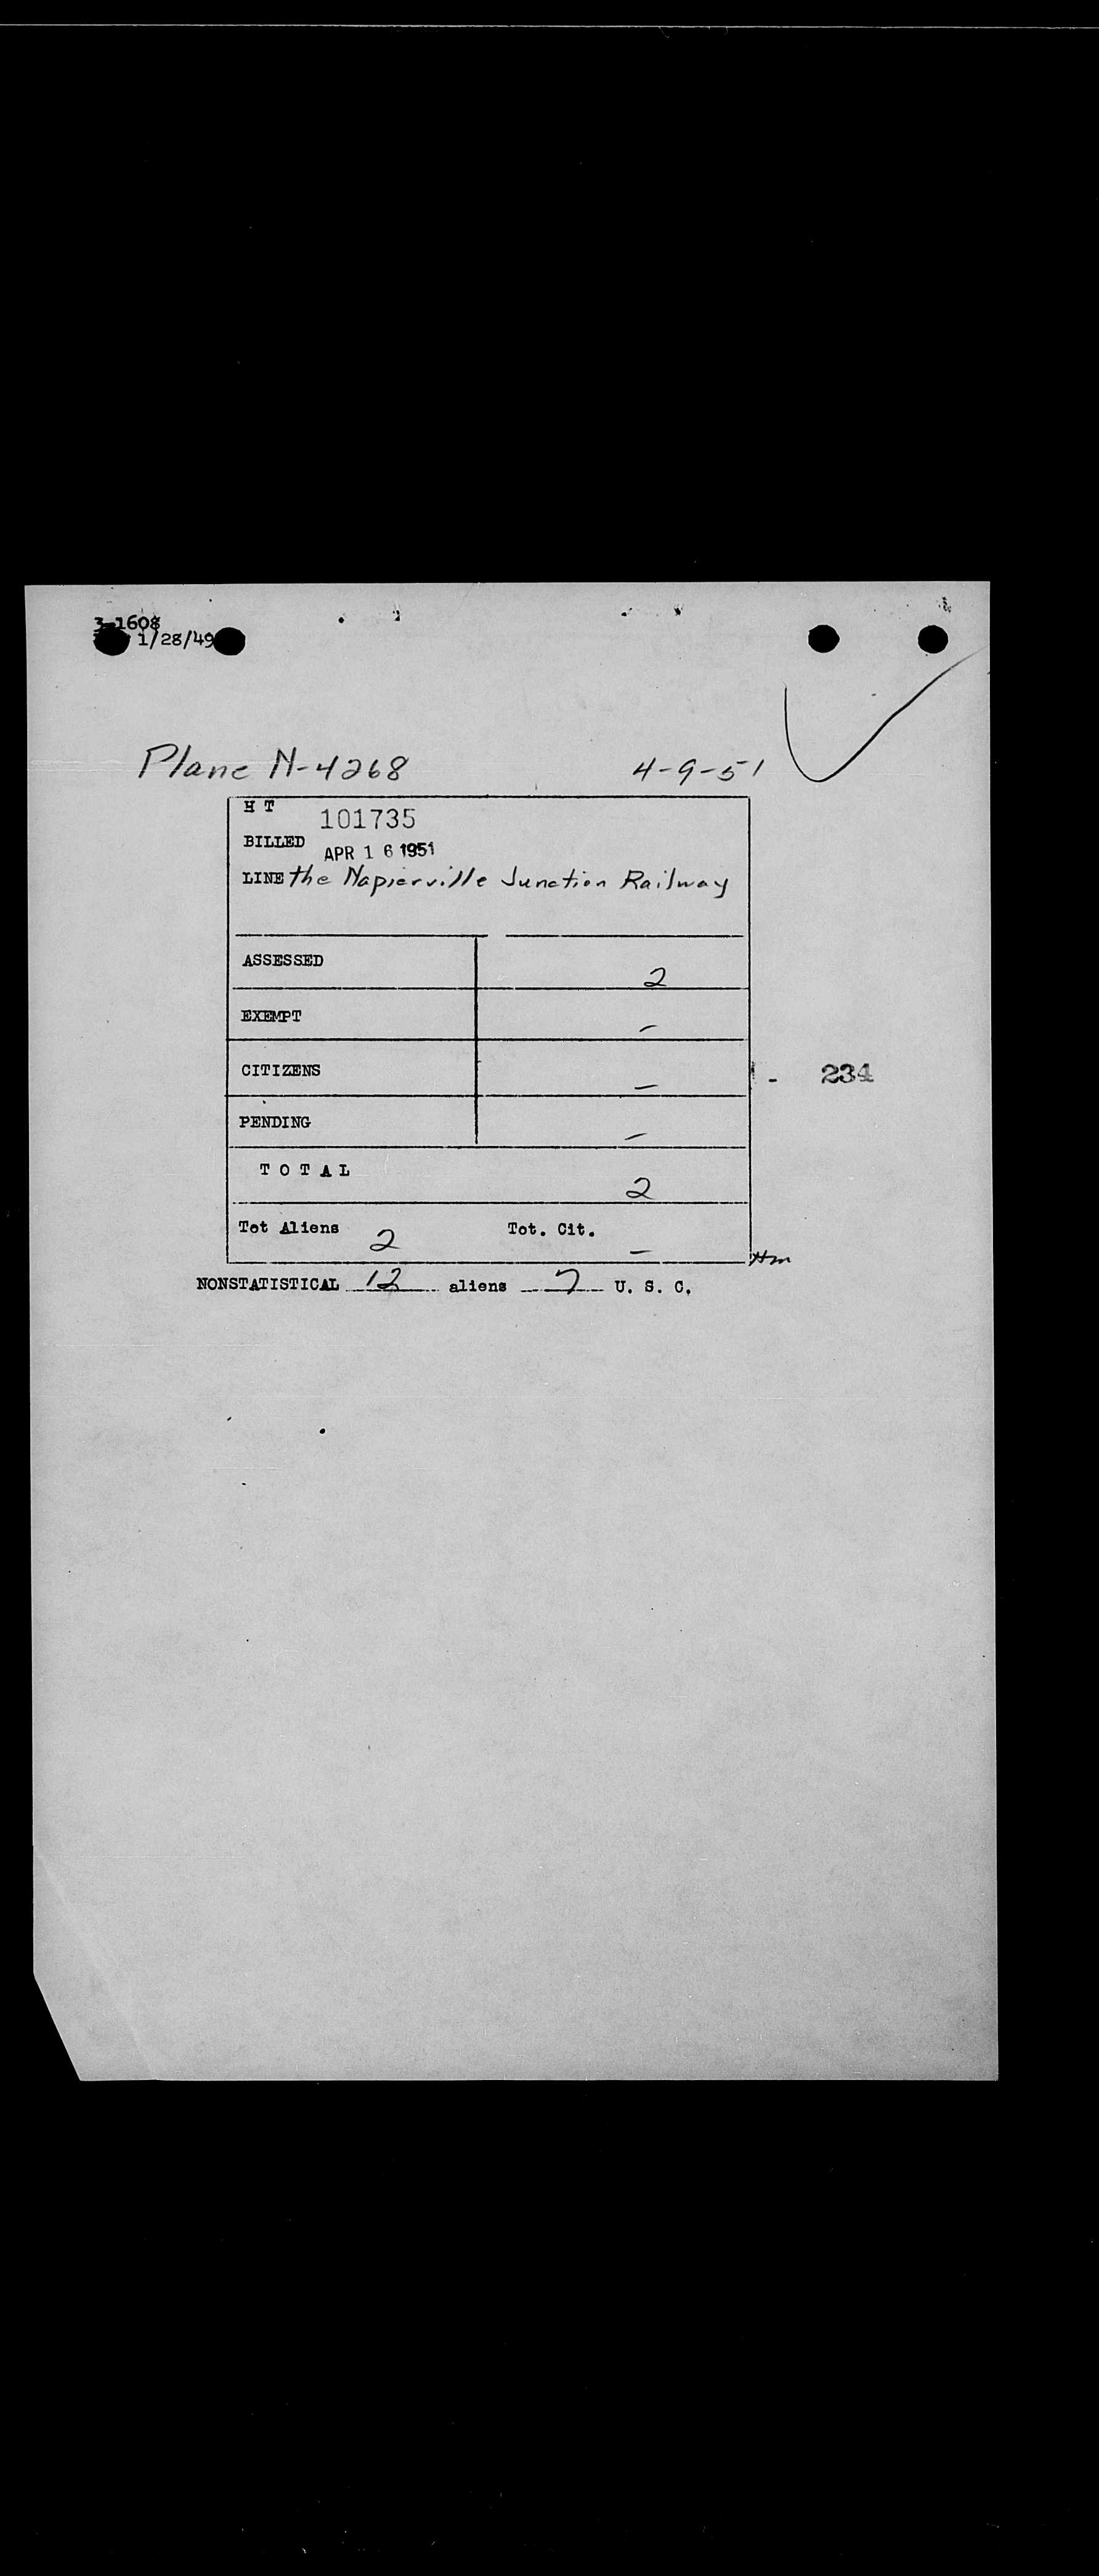 3-1608
1/28/49
Plane N-4268 4-9-51
H T 101735
BILLED APR 16 1951
LINE the Napierville Junction Railway
ASSESSED 2
EXEMPT –
CITIZENS –
- 234
PENDING –
T O T A L 2
Tot Aliens 2 Tot. Cit. –
Hm
NONSTATISTICAL 12 aliens 7 U. S. C.